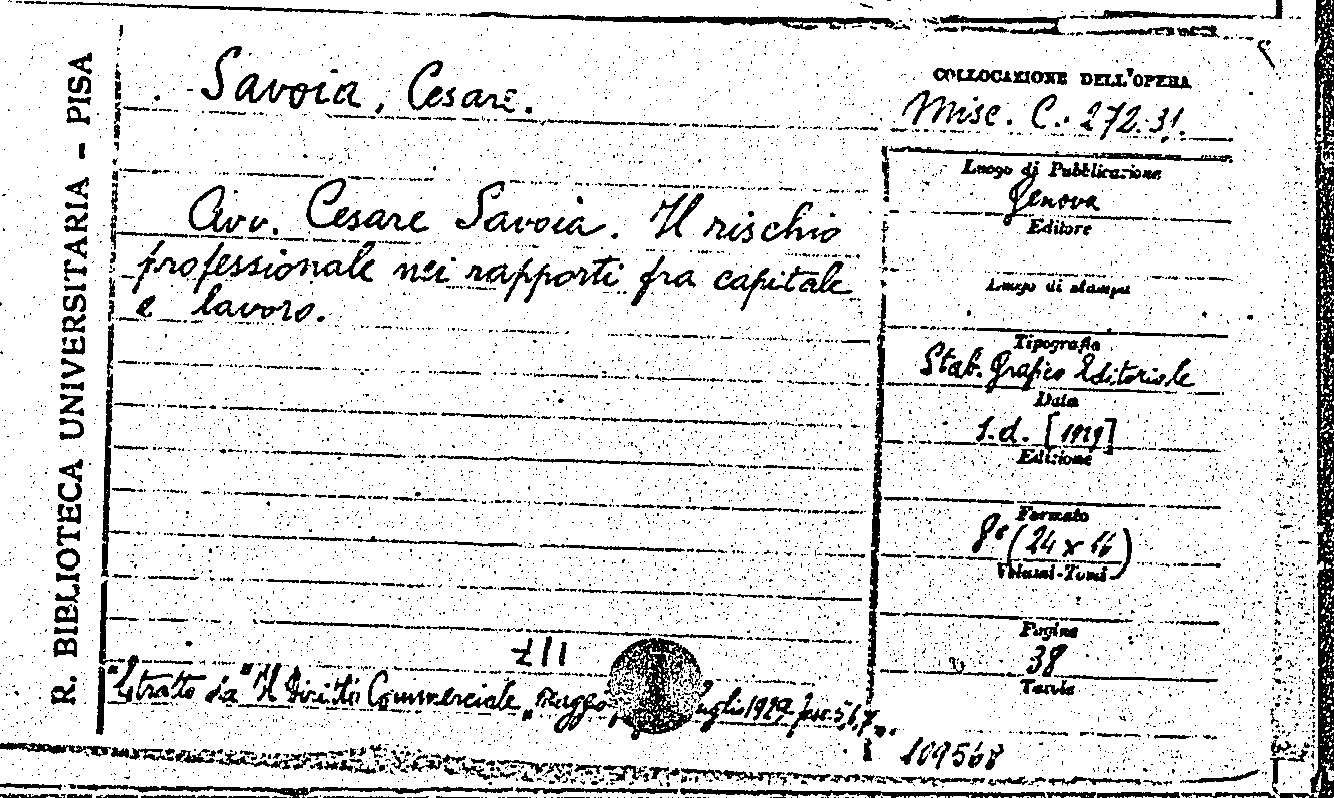 R. BIBLIOTECA UNIVERSITARIA - PISA
Savoia, Cesare.
Avv. Cesare Savoia. Il rischio
professionale nei rapporti fra capitale
e lavoro.
"Estratto da "Il Diritto Commerciale" Maggio
uglio 1929 fasc. 5, 6, 7
COLLOCAZIONE DELL'OPERA
Misc. C. 272.31.
Luogo di Pubblicazione
Genova
Editore
Luogo di stampa
Tipografia
Stab. Grafico Editoriale
Data
s.d. [1929]
Edizione
Formato
8° (24 x 16)
Volumi-Tomi
Pagine
38
Tavole
109568